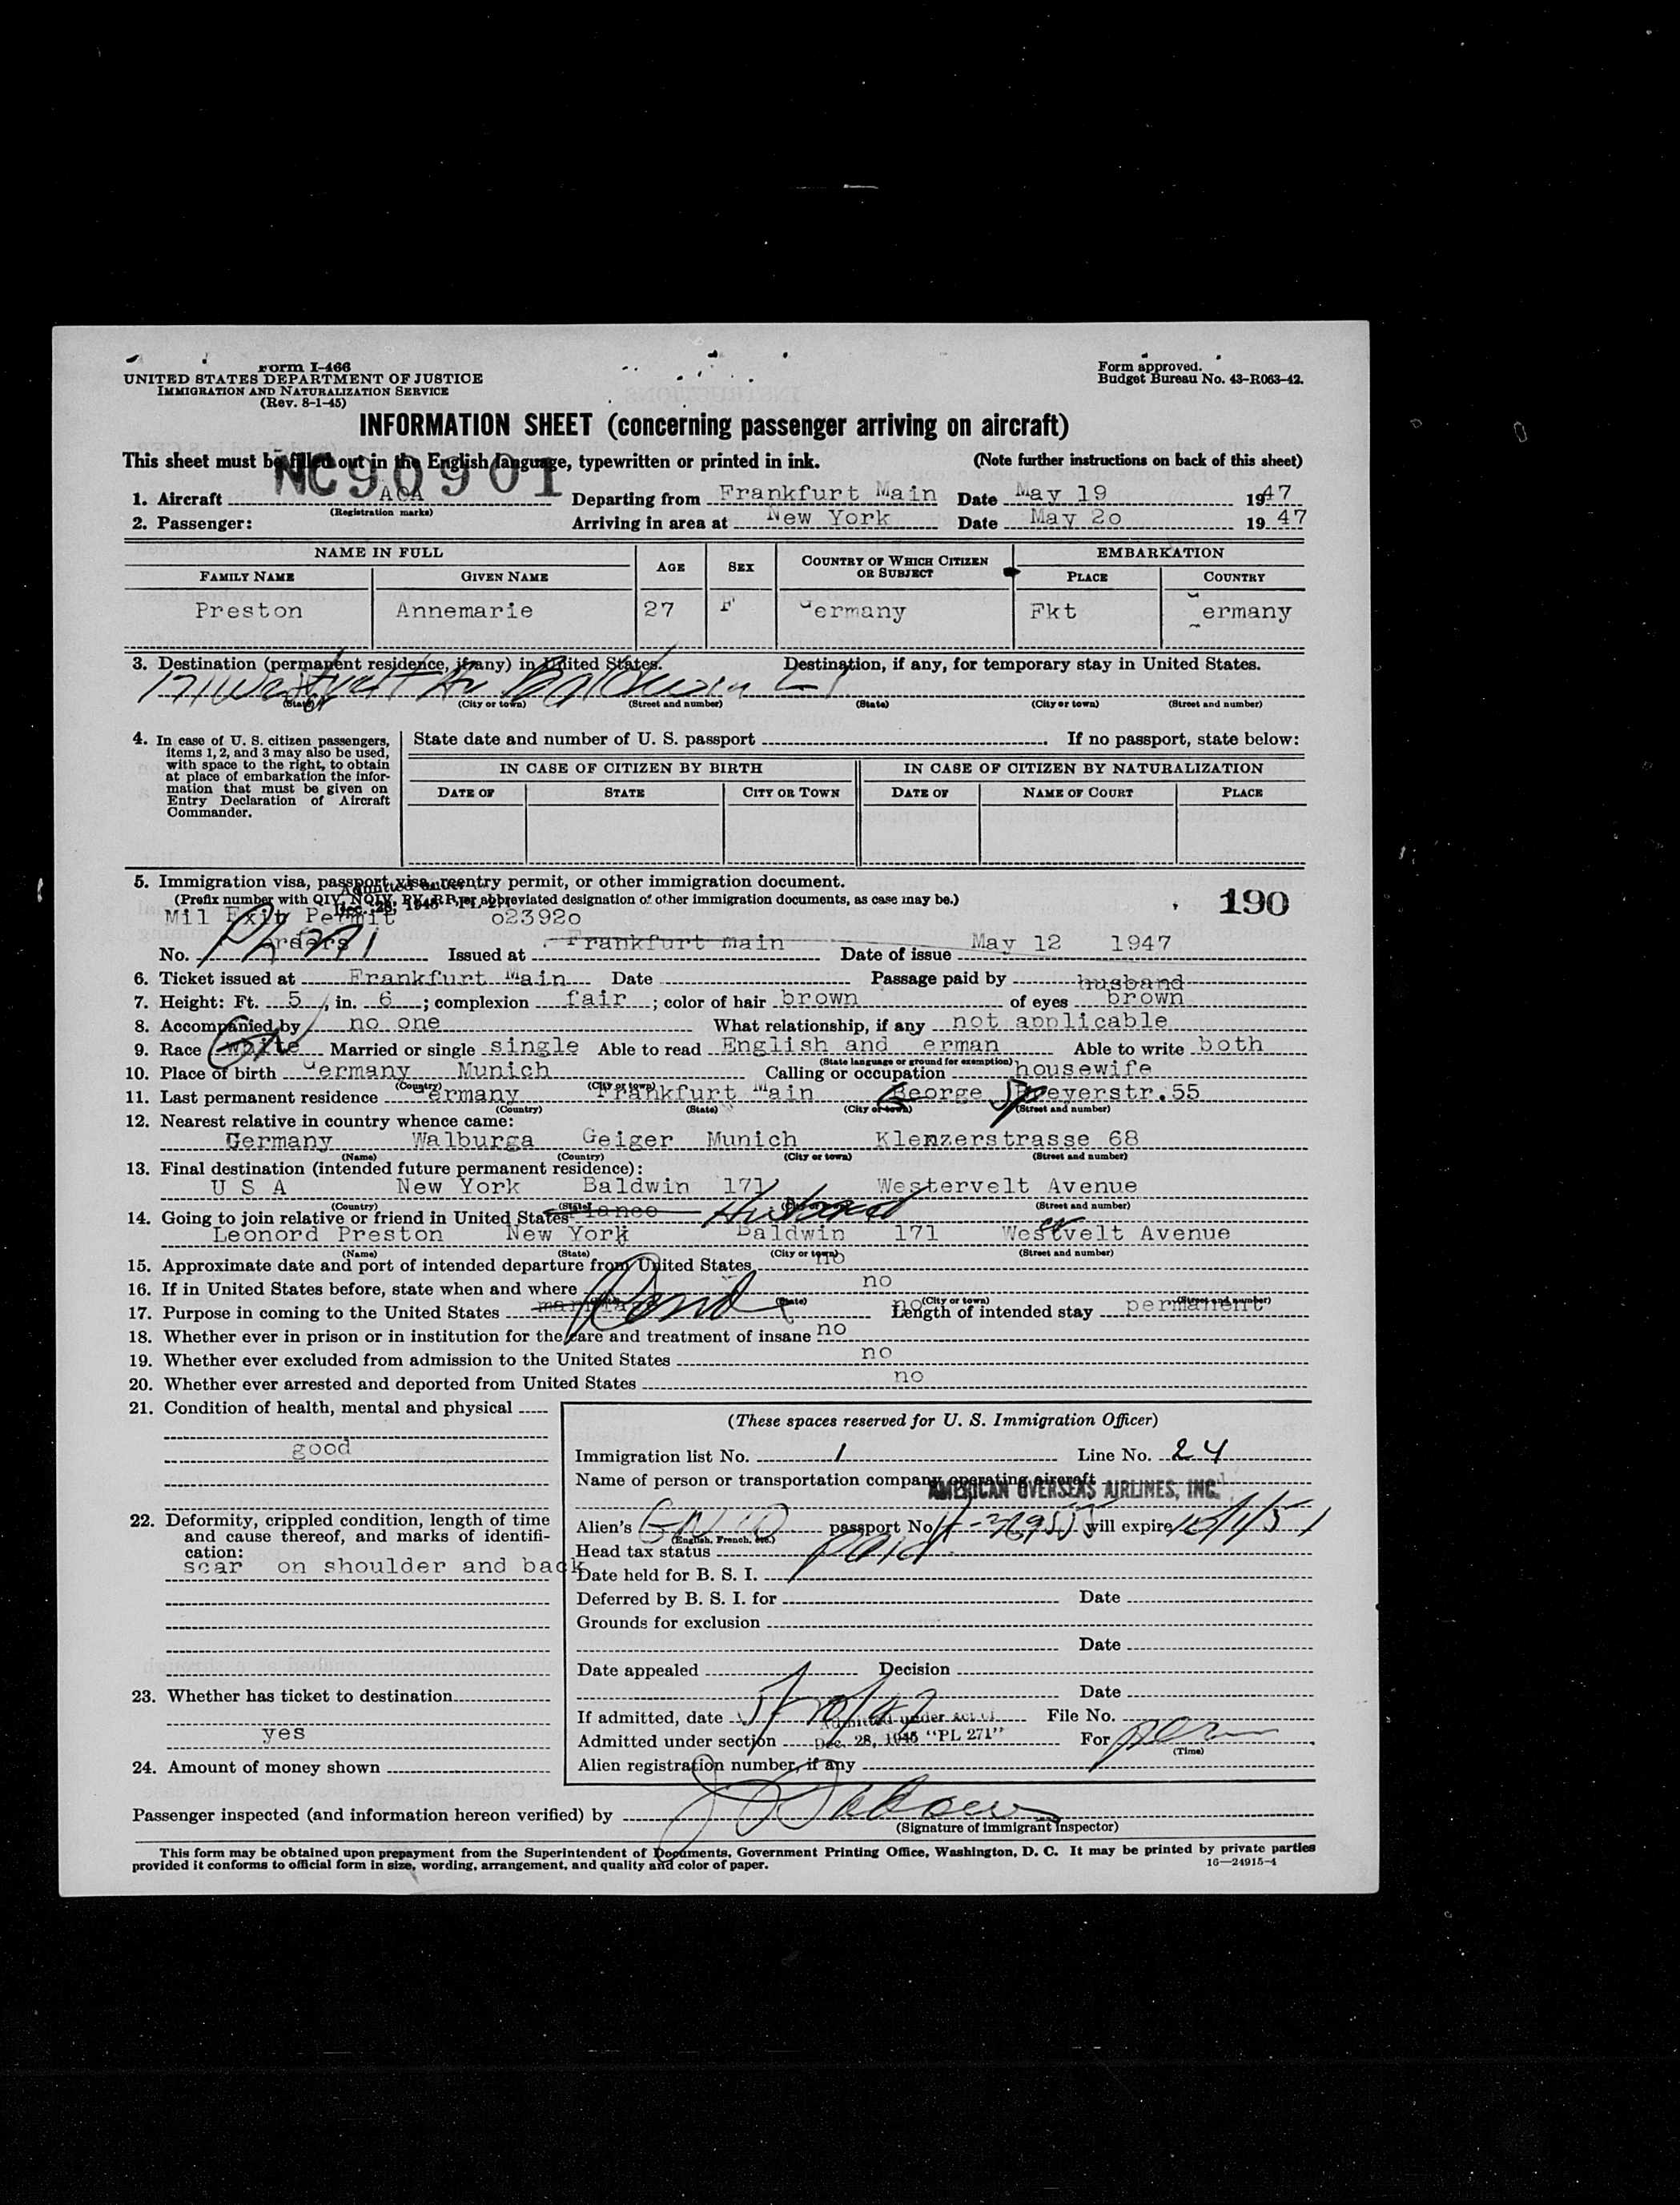 Form I-466
UNITED STATES DEPARTMENT OF JUSTICE
IMMIGRATION AND NATURALIZATION SERVICE
(Rev. 8-1-45)
Form approved.
Budget Bureau No. 43-R063-42.
INFORMATION SHEET (concerning passenger arriving on aircraft)
This sheet must be filled out in the English language, typewritten or printed in ink. (Note further instructions on back of this sheet)
NC90901
1. Aircraft AOA Departing from Frankfurt Main Date May 19 1947
(Registration marks)
2. Passenger: Arriving in area at New York Date May 20 1947
NAME IN FULL AGE SEX COUNTRY OF WHICH CITIZEN OR SUBJECT EMBARKATION
FAMILY NAME GIVEN NAME PLACE COUNTRY
Preston Annemarie 27 F Germany Fkt Germany
3. Destination (permanent residence, if any) in United States. Destination, if any, for temporary stay in United States.
171 Westervelt Av Baldwin L I
(State) (City or town) (Street and number) (State) (City or town) (Street and number)
4. In case of U. S. citizen passengers, items 1, 2, and 3 may also be used, with space to the right, to obtain at place of embarkation the information that must be given on Entry Declaration of Aircraft Commander.
State date and number of U. S. passport . If no passport, state below:
IN CASE OF CITIZEN BY BIRTH IN CASE OF CITIZEN BY NATURALIZATION
DATE OF STATE CITY OR TOWN DATE OF NAME OF COURT PLACE
5. Immigration visa, passport visa, reentry permit, or other immigration document.
(Prefix number with QIV, NQIV, PV, RP, or abbreviated designation of other immigration documents, as case may be.)
Admitted under
Dec. 28, 1945 "PL 271"
190
Mil Exit Permit o2392o
orders
No. PL 271 Issued at Frankfurt main Date of issue May 12 1947
6. Ticket issued at Frankfurt Main Date Passage paid by husband
7. Height: Ft. 5, in. 6; complexion fair; color of hair brown of eyes brown
8. Accompanied by no one What relationship, if any not applicable
9. Race white Married or single single Able to read English and erman Able to write both
(State language or ground for exemption)
10. Place of birth Germany Munich Calling or occupation housewife
(Country) (City or town)
11. Last permanent residence Germany Frankfurt Main George Speyerstr.55
(Country) (State) (City or town) (Street and number)
12. Nearest relative in country whence came:
Germany Walburga Geiger Munich Klenzerstrasse 68
(Name) (Country) (City or town) (Street and number)
13. Final destination (intended future permanent residence):
U S A New York Baldwin 171 Westervelt Avenue
(Country) (State) (City or town) (Street and number)
14. Going to join relative or friend in United States fiance Husband
Leonord Preston New York Baldwin 171 Westervelt Avenue
(Name) (State) (City or town) (Street and number)
15. Approximate date and port of intended departure from United States no
16. If in United States before, state when and where no
(State) (City or town) (Street and number)
17. Purpose in coming to the United States marriage no Length of intended stay permanent
18. Whether ever in prison or in institution for the care and treatment of insane no
19. Whether ever excluded from admission to the United States no
20. Whether ever arrested and deported from United States no
21. Condition of health, mental and physical
good
22. Deformity, crippled condition, length of time and cause thereof, and marks of identification:
scar on shoulder and back
23. Whether has ticket to destination
yes
24. Amount of money shown
(These spaces reserved for U. S. Immigration Officer)
Immigration list No. 1 Line No. 24
Name of person or transportation company operating aircraft
AMERICAN OVERSEAS AIRLINES, INC.
Alien's passport No. will expire
(English, French, etc.)
Head tax status paid
Date held for B. S. I.
Deferred by B. S. I. for Date
Grounds for exclusion
Date
Date appealed Decision
Date
If admitted, date 5/20/47 File No.
Admitted under act of
Admitted under section Dec. 28, 1945 "PL 271" For perm
(Time)
Alien registration number, if any
Passenger inspected (and information hereon verified) by
(Signature of Immigrant Inspector)
This form may be obtained upon prepayment from the Superintendent of Documents, Government Printing Office, Washington, D. C. It may be printed by private parties
provided it conforms to official form in size, wording, arrangement, and quality and color of paper.
16—24915-4